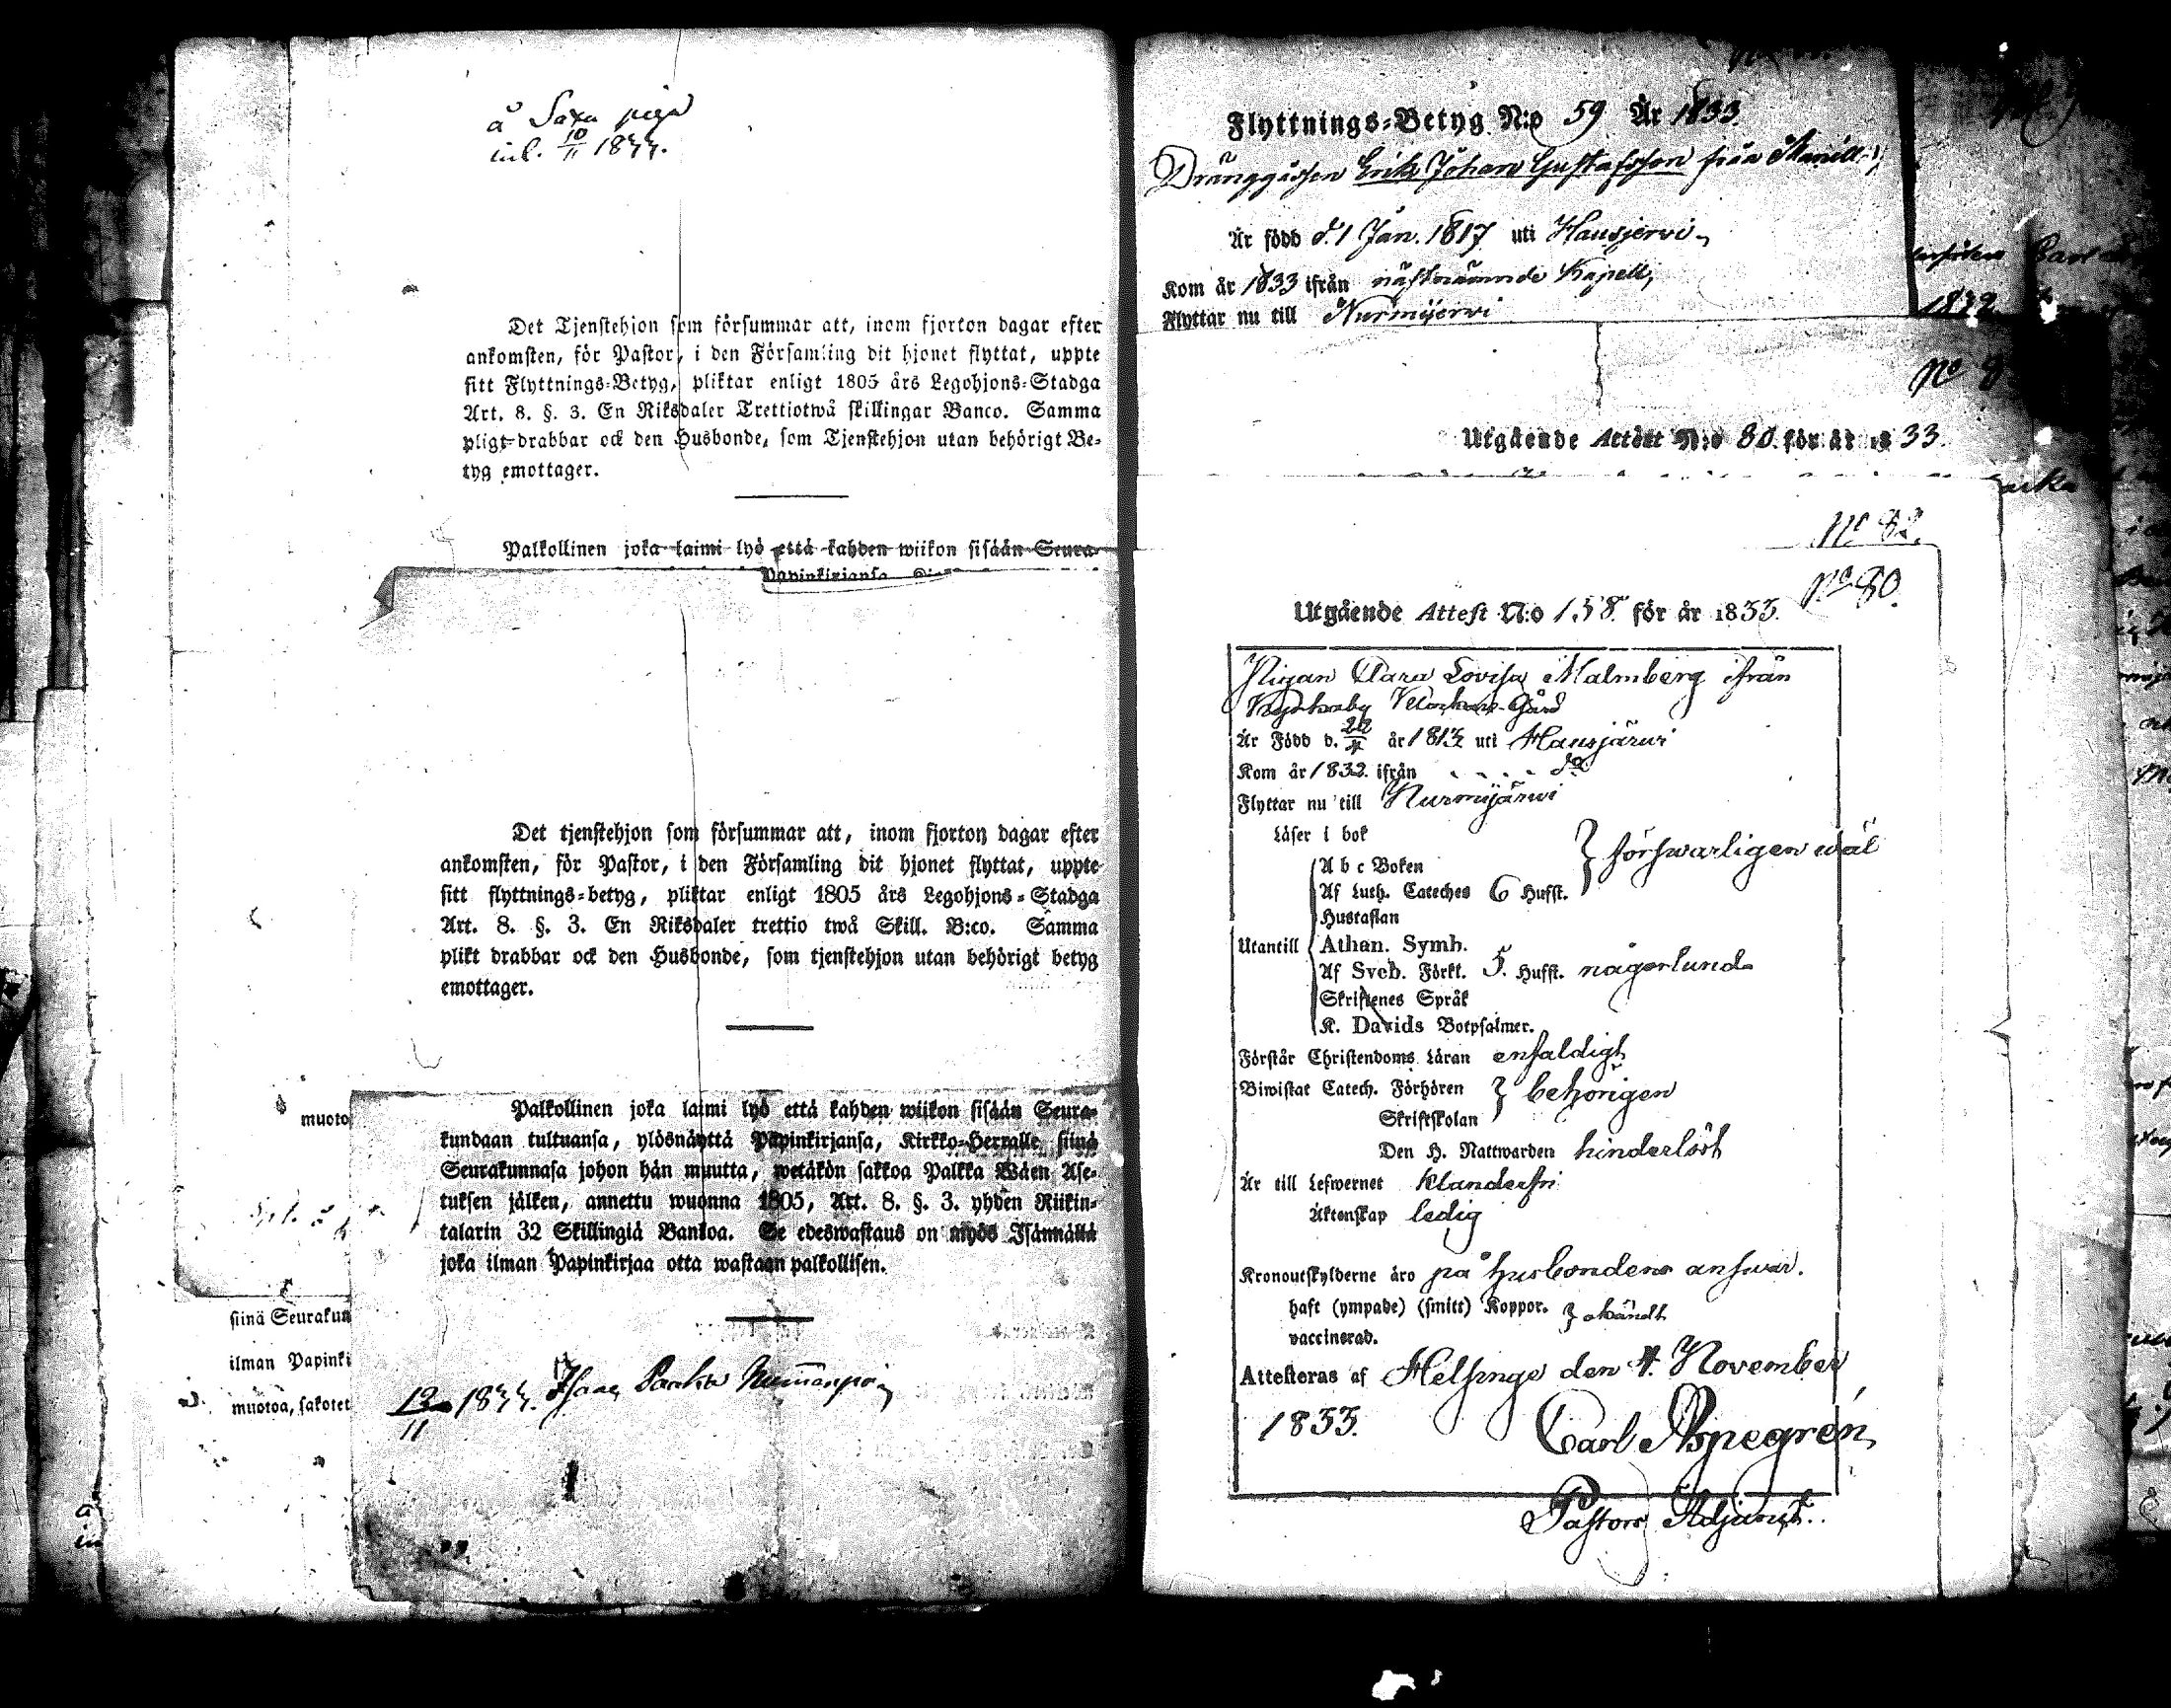 å Saxu piga
inl. 10/11 1833.
Det Tjenstehjon som försummar att, inom fjorton dagar efter
ankomsten, för Pastor, i den Församling dit hjonet flyttat, uppte
sitt Flyttnings-Betyg, pliktar enligt 1805 års Legohjons-Stadga
Art. 8. §. 3. En Riksdaler Trettiotwå skillingar Banco. Samma
pligt drabbar ock den Husbonde, som Tjenstehjon utan behörigt Be-
tyg emottager.
Palkollinen joka laimi lyö että kahden wiikon sisään Seura-
Papinkirjansa
Det tjenstehjon som försummar att, inom fjorton dagar efter
ankomsten, för Pastor, i den Församling dit hjonet flyttat, uppte
sitt flyttnings-betyg, pliktar enligt 1805 års Legohjons-Stadga
Art. 8. §. 3. En Riksdaler trettio twå Skill. B:co. Samma
plikt drabbar ock den Husbonde, som tjenstehjon utan behörigt betyg
emottager.
Palkollinen joka laimi lyö että kahden wiikon sisään Seura-
kundaan tultuansa, ylösnäyttä Papinkirjansa, Kirkko-Herralle siinä
Seurakunnasa johon hän muutta, wetäkön sakkoa Palkka Wäen Ase-
tuksen jälken, annettu wuonna 1805, Art. 8. §. 3. yhden Riikin-
talarin 32 Skillingiä Bankoa. Se edeswastaus on myös Isännällä
joka ilman Papinkirjaa otta wastaan palkollisen.
12/11 1833. Isaac
muoto
siinä Seurakun
ilman Papinki
muotoa, sakotet
Flyttnings-Betyg N:o 59 År 1833
Dränggåssen Erik Johan Gustafsson från
Är född d. 1 Jan. 1817 uti Hausjerwi
Kom år 1833 ifrån nästnämnde Kapell,
Flyttar nu till Nurmijerwi
1832
No 8
Utgående Attest N:o 80. för år 1833.
No 82.
No 80.
Utgående Attest N:o 158. för år 1833.
Pigan Clara Lovisa Malmberg ifrån
Gård
Är Född d. år 1813 uti Hausjärwi
Kom år 1832. ifrån - - - - do
Flyttar nu till Nurmijärwi
Läser i bok
A b c Boken } förswarligen wäl
Af Luth. Cateches 6 Hufst.
Hustaflan
Utantill Athan. Symb.
Af Sveb. Förkl. 5. Hufst. någorlunda
Skriftenes Språk
K. Davids Botpsalmer.
Förstår Christendoms Läran enfaldigt
Biwistat Catech. Förhören } behörigen
Skriftskolan
Den H. Nattwarden hinderlöst
Är till Lefwernet klanderfri
Äktenskap ledig
Kronoutskylderne äro på husbondens answar.
haft (ympade) (smitt) Koppor. } okändt
vaccinerad.
Attesteras af Helsinge den 4. November
1833. Carl Aspegrén,
Pastors Adjunct.